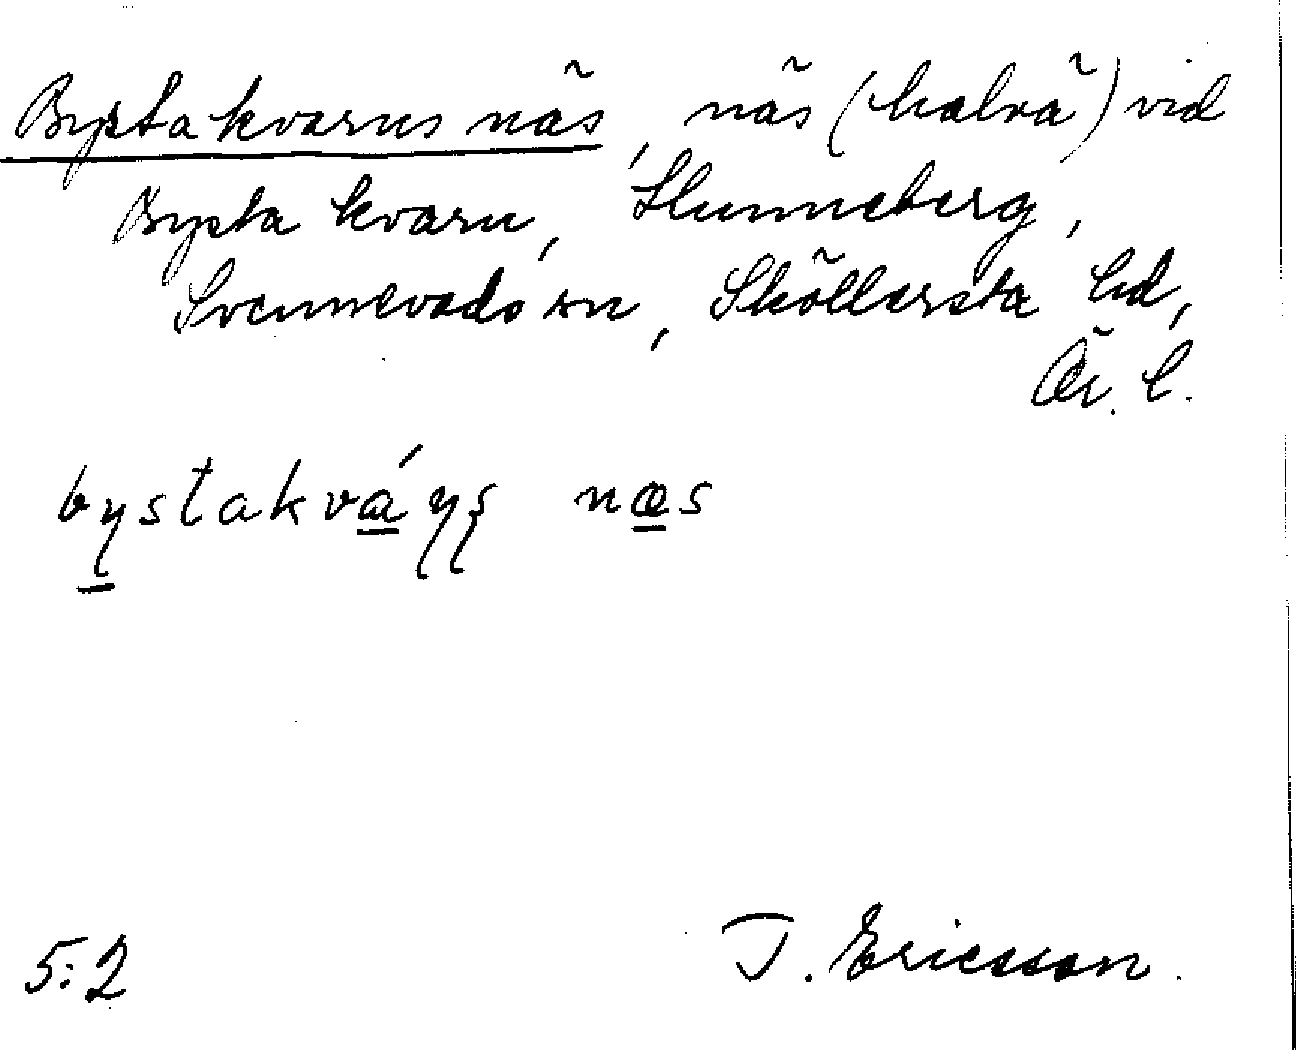 Bystakvarns näs, näs (halvö) vid
Bysta kvarn, Skunneberg,
Svennevads sn, Sköllersta hd,
Ör. l.
bystakvá næs
5:2
T. Ericsson.